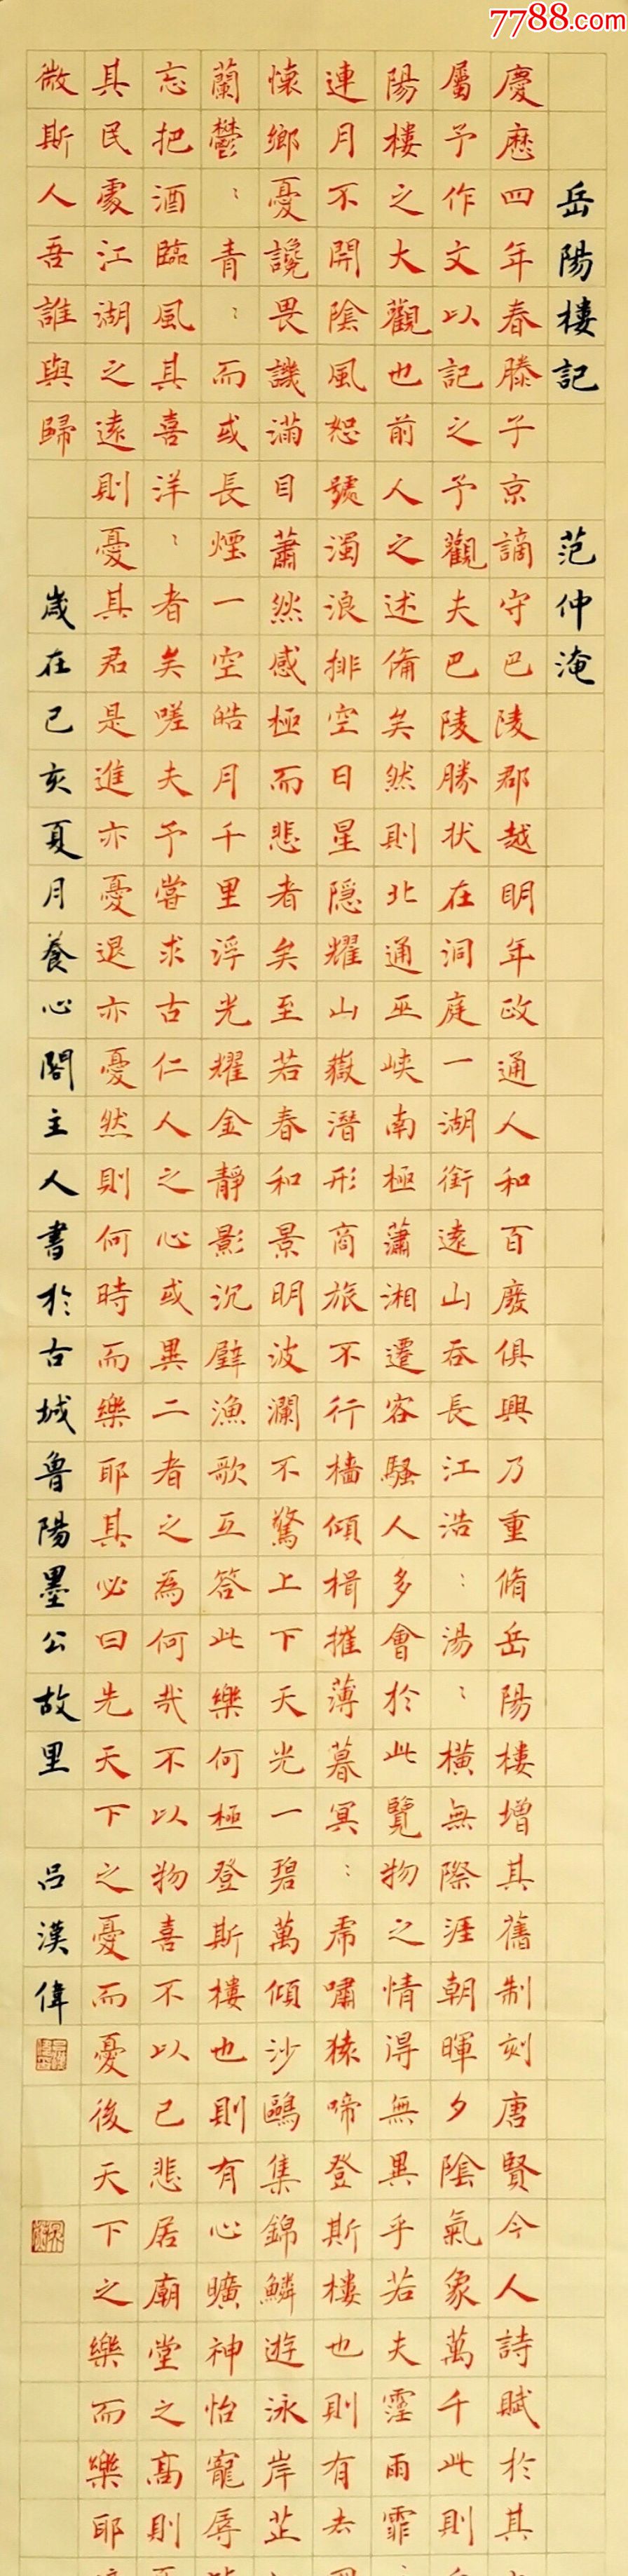 7788.com
岳陽樓記 范仲淹
慶歷四年春滕子京謫守巴陵郡越明年政通人和百廢俱興乃重脩岳陽樓增其舊制刻唐賢今人詩賦於其
屬予作文以記之予觀夫巴陵勝狀在洞庭一湖銜遠山吞長江浩:湯:橫無際涯朝暉夕陰氣象萬千此則
陽樓之大觀也前人之述備矣然則北通巫峽南極瀟湘遷客騷人多會於此覽物之情得無異乎若夫霪雨霏
連月不開陰風怒號濁浪排空日星隱耀山嶽潛形商旅不行檣傾楫摧薄暮冥:虎嘯猿啼登斯樓也則有去
懷鄉憂讒畏譏滿目蕭然感極而悲者矣至若春和景明波瀾不驚上下天光一碧萬傾沙鷗集錦鱗遊泳岸芷
蘭鬱:青:而或長煙一空皓月千里浮光耀金靜影沉璧漁歌互答此樂何極登斯樓也則有心曠神怡寵辱
忘把酒臨風其喜洋:者矣嗟夫予嘗求古仁人之心或異二者之為何哉不以物喜不以己悲居廟堂之高則
其民處江湖之遠則憂其君是進亦憂退亦憂然則何時而樂耶其必曰先天下之憂而憂後天下之樂而樂耶
微斯人吾誰與歸 歲在己亥夏月養心閣主人書於古城魯陽墨公故里 呂漢偉